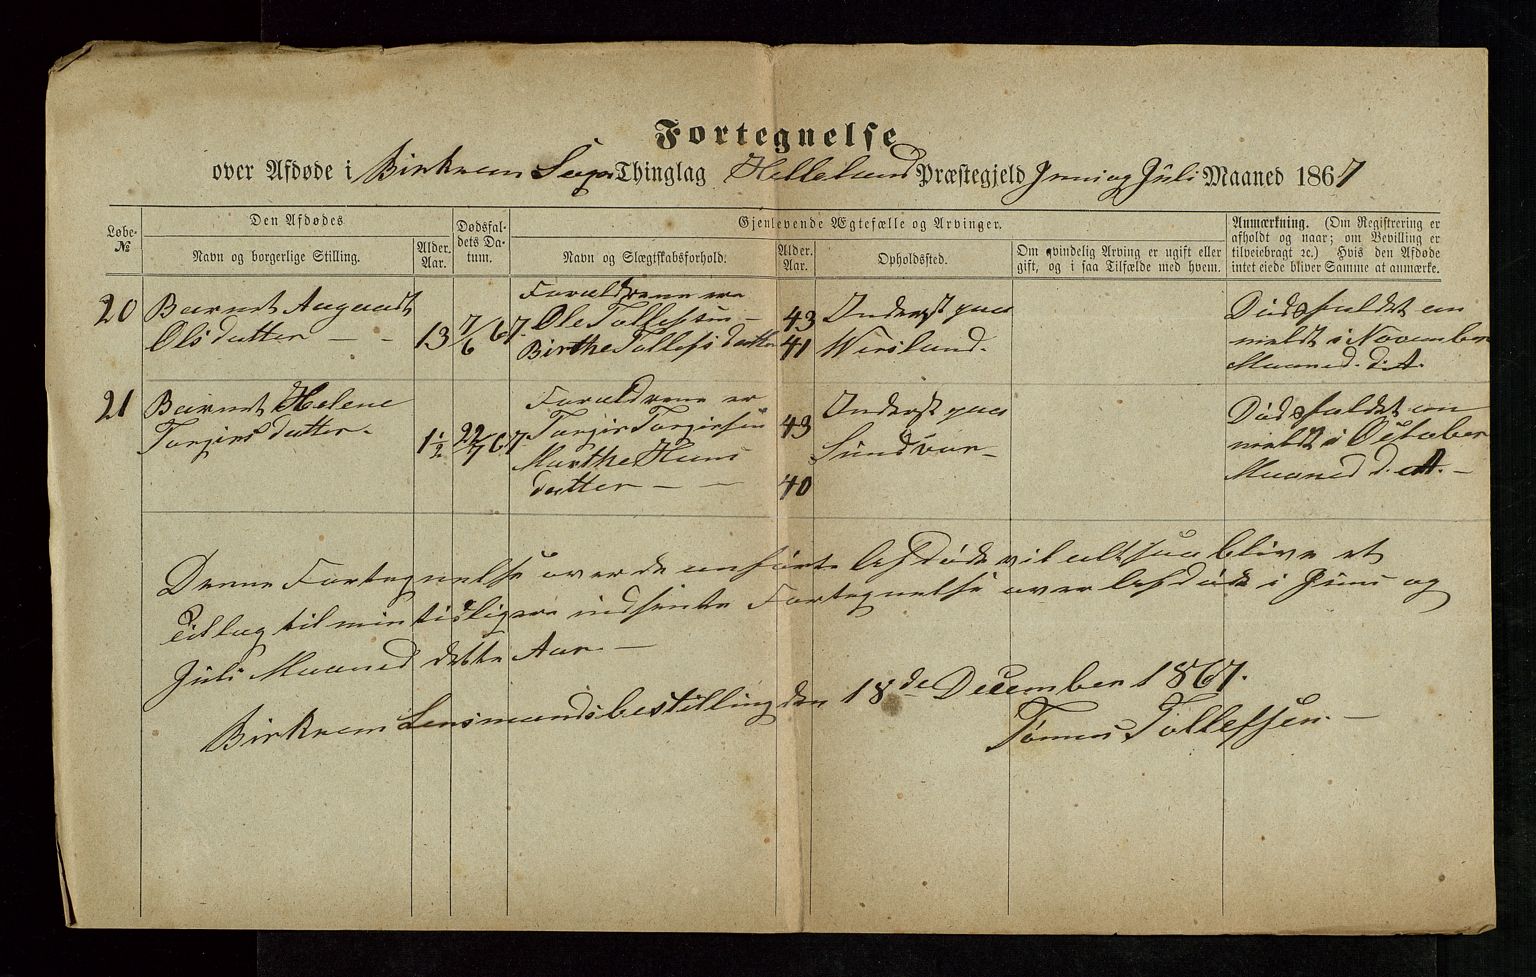 Fortegnelse
over Afdøde i Birkrem Sogns Thinglag Helleland Præstegjeld Juni og Juli Maaned 1867
Løbe-
№
Den Afdødes
Navn og borgerlige Stilling.
Alder.
Aar.
Dødsfal-
dets Da-
tum.
Gjenlevende Ægtefælle og Arvinger.
Navn og Slægtskabsforhold.
Alder.
Aar.
Opholdssted.
Om qvindelig Arving er ugift eller
gift, og i saa Tilfælde med hvem.
Anmærkning. (Om Registrering er
afholdt og naar; om Bevilling er
tilveiebragt ɾc.) Hvis den Afdøde
intet eiede bliver Samme at anmærke.
20 Barnet Aagaadt
Olsdatter — - 13 7/6 67.
Forældrene ere
Ole Tollefsen — 43
Birthe Tollefsdatter 41
Inderst paa
Wersland.
Dødsfaldet an
meldt i November
Maaned d. A.
21 Barnet Helene
Torgirsdatter. 1½ 22/7 67.
Forældrene er
Torgir Torgirsen 43
Marthe Hans
datter — — 40
Inderst paa
Sundvor —
Dødsfaldet an
meldt i October
Maaned d. A. —
Denne Fortegnelse over de anførte Afdøde vil altsaa blive et
Tillæg til min tidligere indsendte Fortegnelse over Afdøde i Juni og
Juli Maaned dette Aar. —
Birkrem Lensmandsbestilling den 18de December 1867.
Tønnes Tollefsen. —